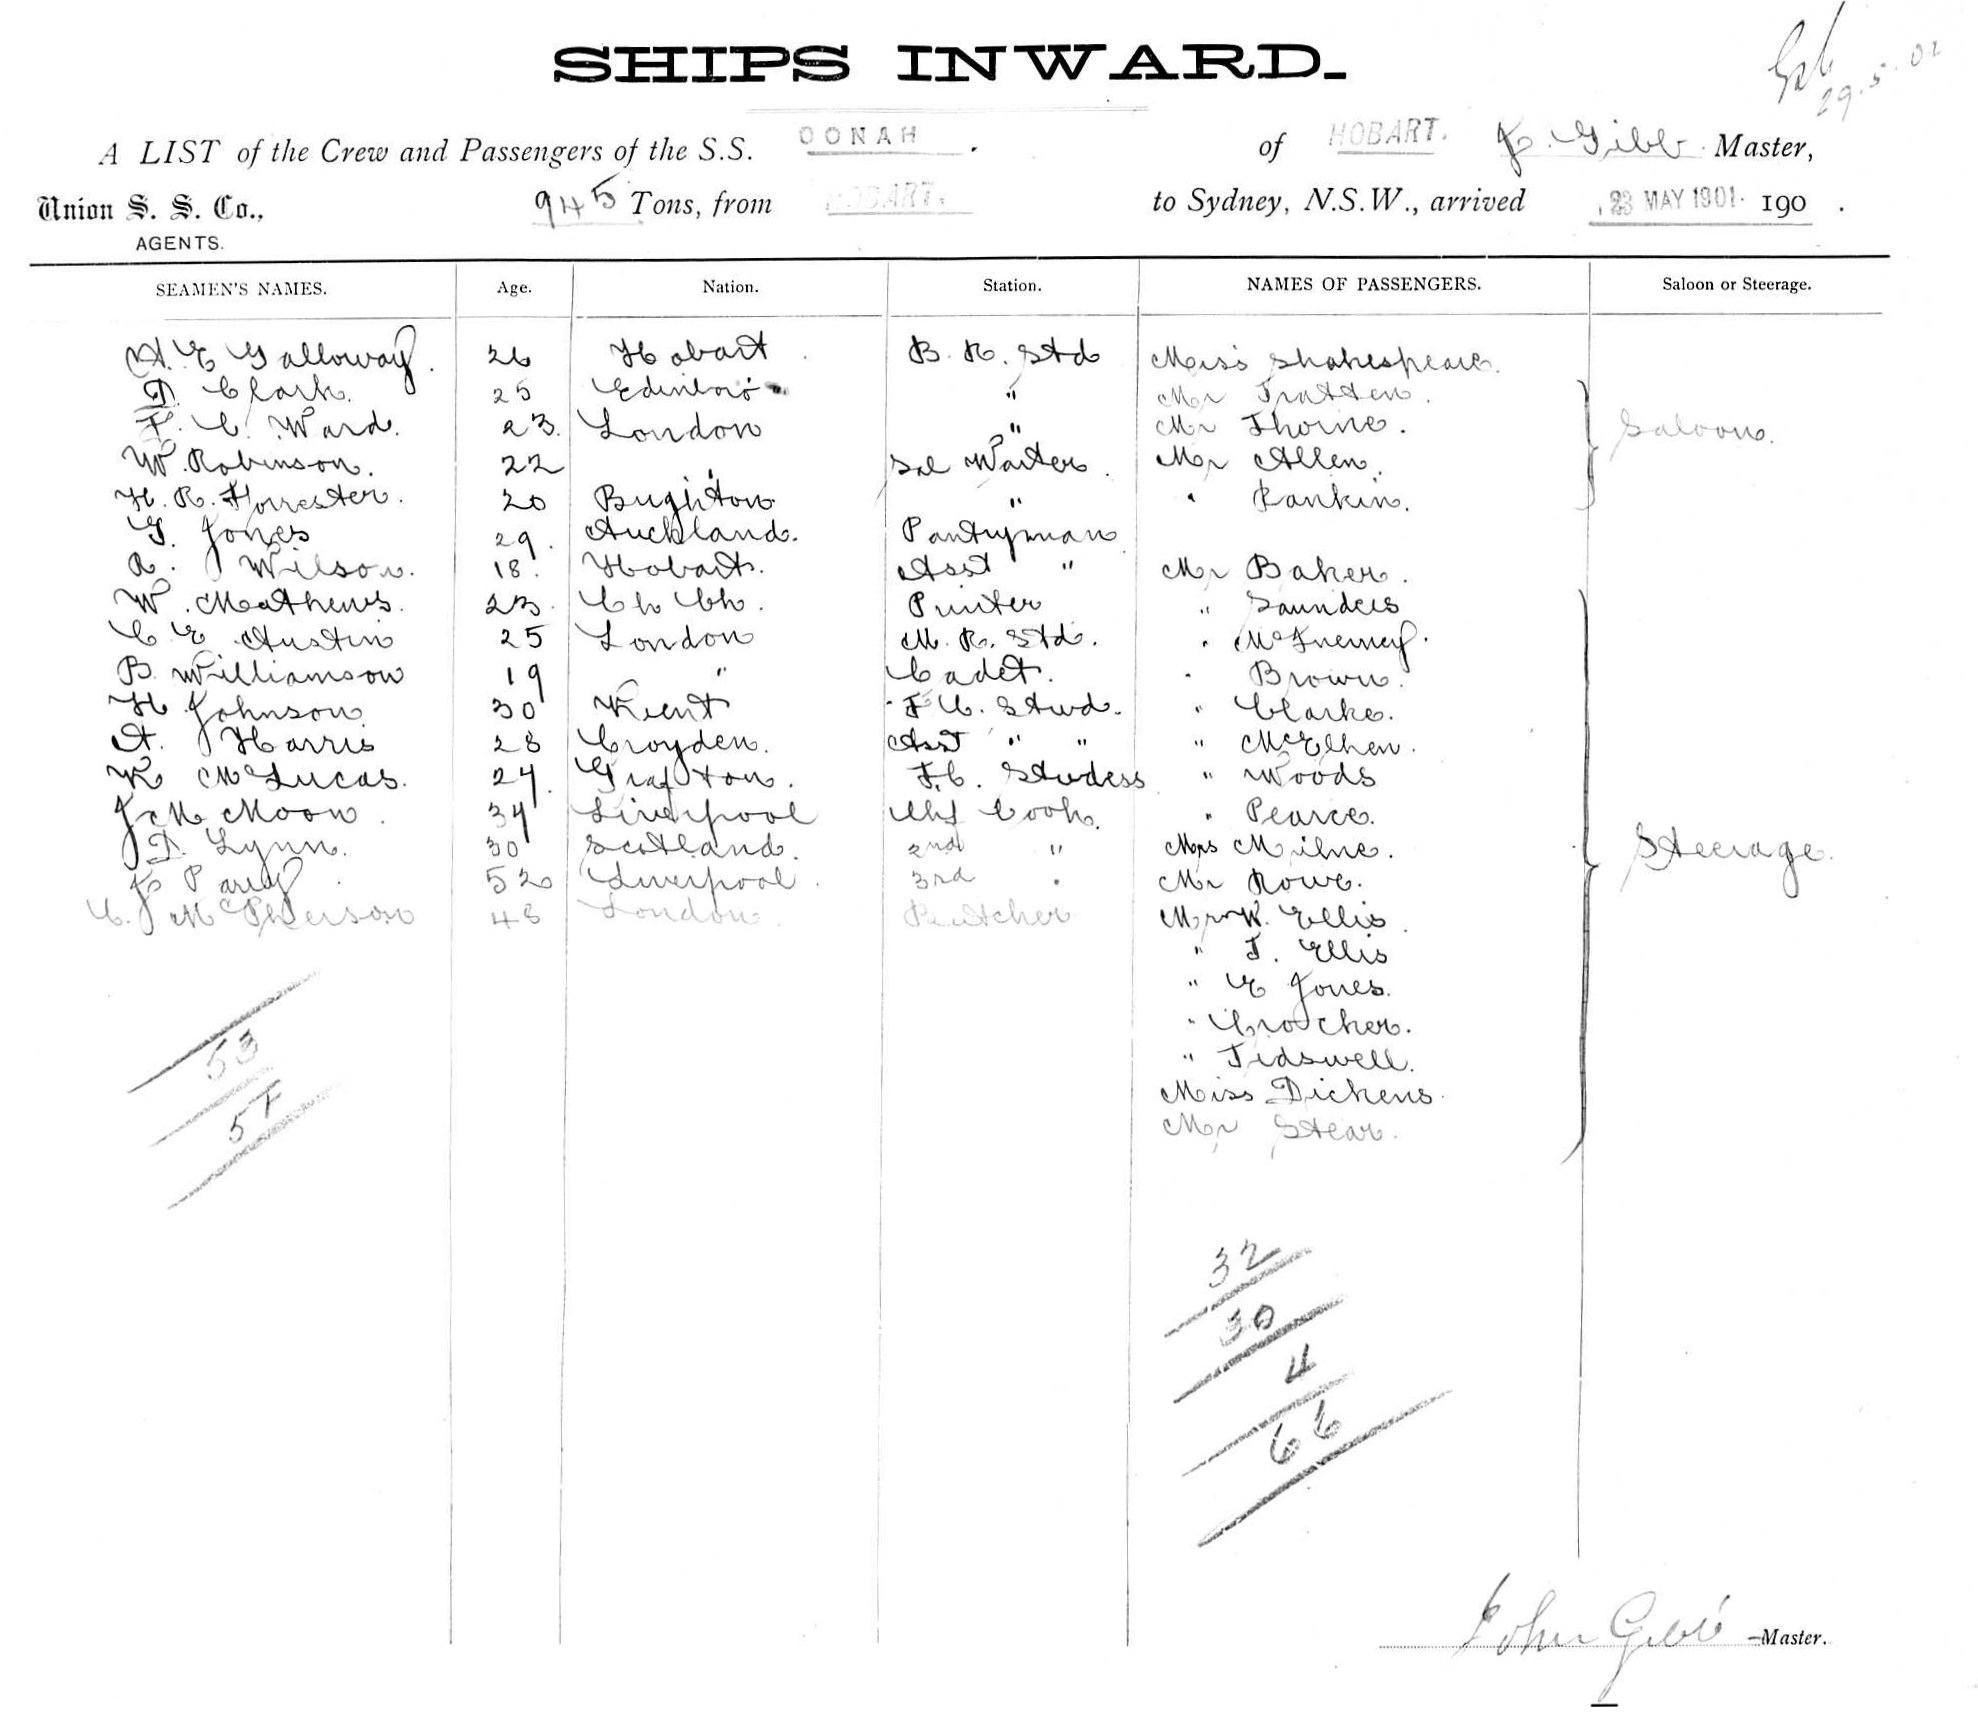 SHIPS INWARD.
29.5.02
A LIST of the Crew and Passengers of the S.S. OONAH. of HOBART. J. Gibb Master,
Union S. S. Co., 945 Tons, from HOBART. to Sydney, N.S.W., arrived 23 MAY 1901. 190 .
AGENTS.
SEAMEN'S NAMES. Age. Nation. Station. NAMES OF PASSENGERS. Saloon or Steerage.
A. E Galloway. 26 Hobart B. R. Std Miss Shakespeare.
D. Clark. 25 Edinboro " Mr Tratten.
F. C. Ward. 23. London " Mr Thorne. Saloon.
W. Robinson. 22 " Sal Waiter. Mr Allen.
H. R. Forrester. 20 Brighton " " Rankin.
G. Jones 29. Auckland. Pantryman
R. Wilson. 18. Hobart. Asst " Mr Baker.
W. Mathews. 23. Ch Ch. Printer " Saunders
C. E Austin 25 London M. R. Std. " McInerney.
B. Williamson 19 " Cadet. " Brown.
H Johnson 30 Kent F C. Stwd. " Clarke.
A. Harris 28 Croyden. Asst " " " McElhen.
K McLucas. 27. Grafton. F.C. Stwdess " Woods
J M Moon. 34 Liverpool Chf Cook. " Pearce.
D. Lynn. 30 Scotland. 2nd " Mrs Milne. Steerage.
J Parry 52 Liverpool. 3rd " Mr Rowe.
C. McPherson 48 London Butcher Mr W. Ellis.
" T. Ellis
" E Jones.
" Crocker.
53
" Tidswell.
57
Miss Dickens.
Mr Stear.
32
30
4
66
John Gibb Master.